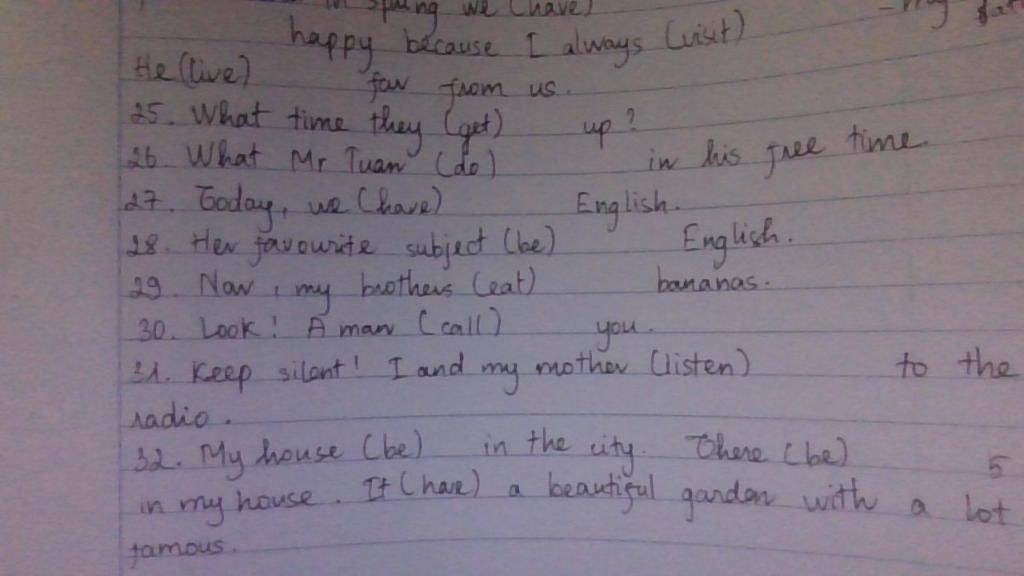 in spring we (have)
happy because I always (visit) - my
He (live) far from us.
25. What time they (get) up?
26. What Mr Tuan (do) in his free time
27. Today, we (have) English.
28. Her favourite subject (be) English.
29. Now, my brothers (eat) bananas.
30. Look! A man (call) you.
31. Keep silent! I and my mother (listen) to the
radio.
32. My house (be) in the city. There (be) 5
in my house. It (have) a beautiful garden with a lot
famous.